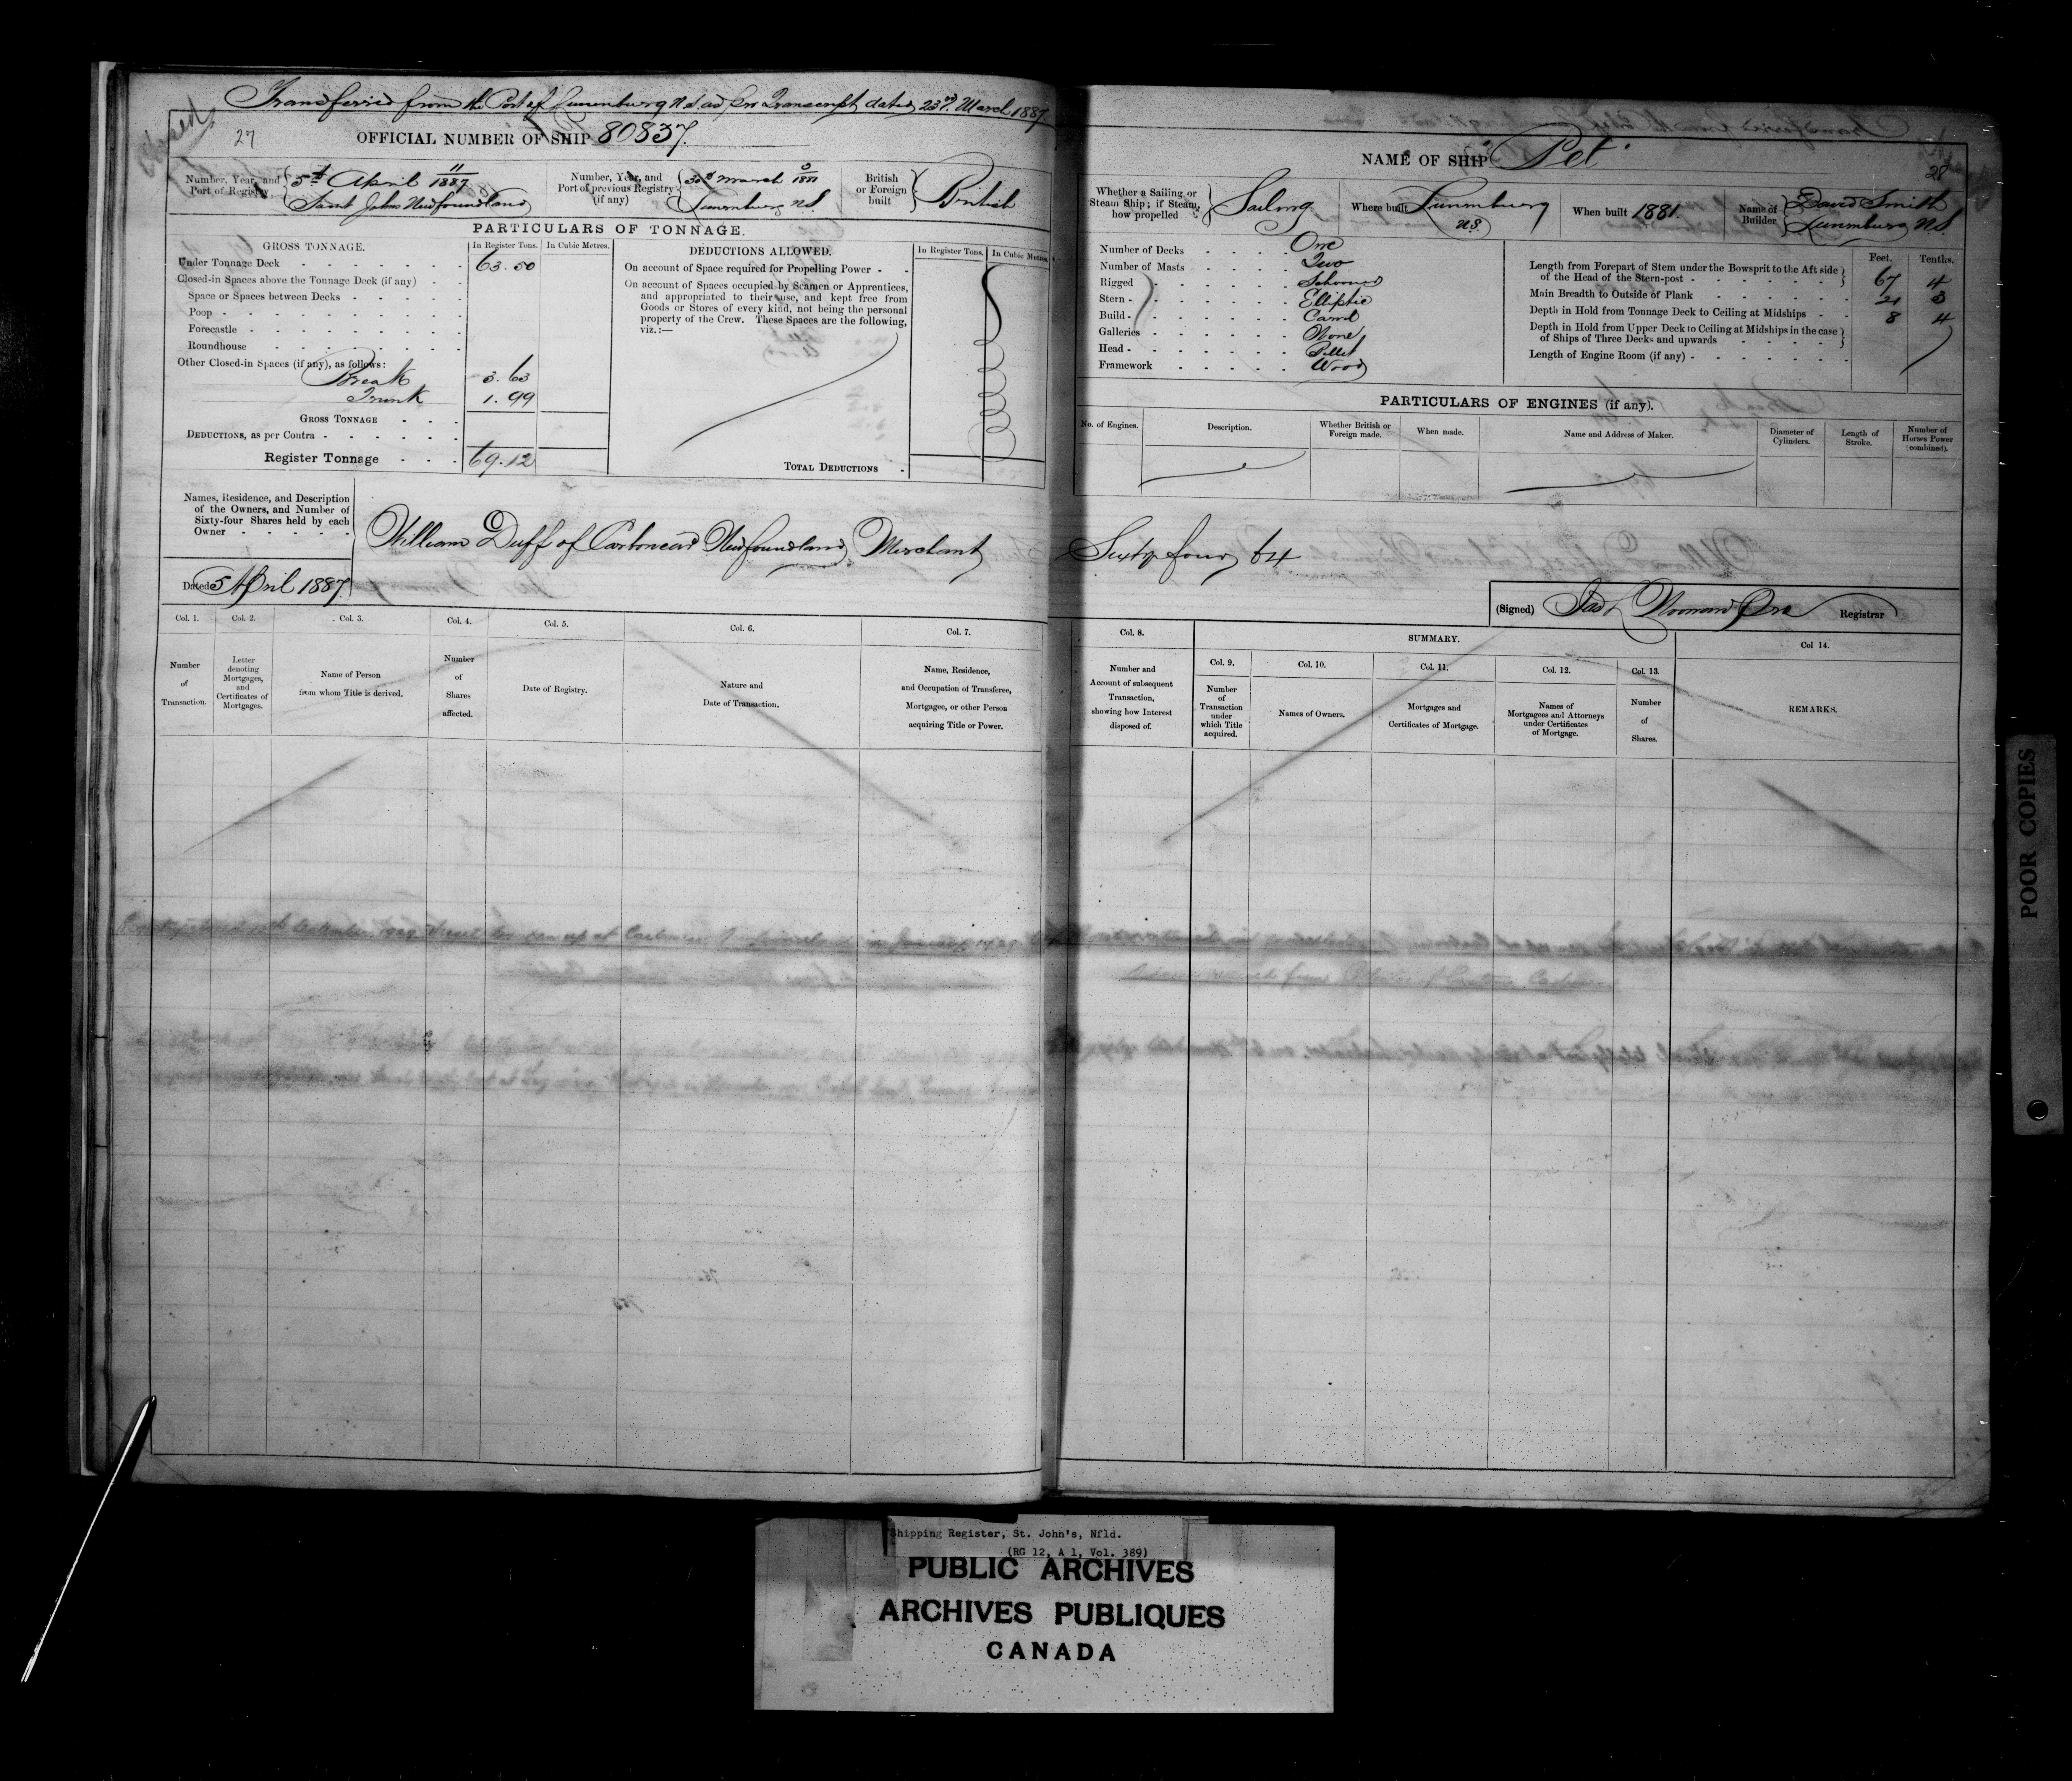 Transferred from the Port of Lunenburg N.S. as per Transcript dated 23rd. March 1887
Closed
27
OFFICIAL NUMBER OF SHIP 80837.
Number, Year, and Port of Registry
11
5th April 1887
Saint Johns Newfoundland
Number, Year, and Port of previous Registry (if any)
March 1881
Lunenburg N.S.
British or Foreign built
British
PARTICULARS OF TONNAGE.
GROSS TONNAGE.
In Register Tons.
In Cubic Metres.
Under Tonnage Deck 63.50
Closed-in Spaces above the Tonnage Deck (if any)
Space or Spaces between Decks
Poop
Forecastle
Roundhouse
Other Closed-in Spaces (if any), as follows:
Break 3.63
Trunk 1.99
GROSS TONNAGE
DEDUCTIONS, as per Contra
Register Tonnage 69.12
DEDUCTIONS ALLOWED.
In Register Tons.
In Cubic Metres.
On account of Space required for Propelling Power
On account of Spaces occupied by Seamen or Apprentices,
and appropriated to their use, and kept free from
Goods or Stores of every kind, not being the personal
property of the Crew. These Spaces are the following,
viz.:—
TOTAL DEDUCTIONS
Names, Residence, and Description
of the Owners, and Number of
Sixty-four Shares held by each
Owner
William Duff of Carbonear Newfoundland Merchant Sixty four 64
Dated 5 April 1887.
Col. 1.
Number
of
Transaction.
Col. 2.
Letter
denoting
Mortgages,
and
Certificates of
Mortgages.
Col. 3.
Name of Person
from whom Title is derived.
Col. 4.
Number
of
Shares
affected.
Col. 5.
Date of Registry.
Col. 6.
Nature and
Date of Transaction.
Col. 7.
Name, Residence,
and Occupation of Transferee,
Mortgagee, or other Person
acquiring Title or Power.
NAME OF SHIP "Pet"
28
Whether a Sailing or
Steam Ship; if Steam,
how propelled
Sailing
Where built
Lunenburg
N.S.
When built 1881.
Name of Builder
David Smith
Lunenburg N.S.
Number of Decks One
Number of Masts Two
Rigged Schooner
Stern Elliptic
Build Carvel
Galleries None
Head Billet
Framework Wood
Feet. Tenths.
Length from Forepart of Stem under the Bowsprit to the Aft side
of the Head of the Stern-post 67 4
Main Breadth to Outside of Plank 21 3
Depth in Hold from Tonnage Deck to Ceiling at Midships 8 4
Depth in Hold from Upper Deck to Ceiling at Midships in the case
of Ships of Three Decks and upwards
Length of Engine Room (if any)
PARTICULARS OF ENGINES (if any).
No. of Engines.
Description.
Whether British or
Foreign made.
When made.
Name and Address of Maker.
Diameter of
Cylinders.
Length of
Stroke.
Number of
Horses Power
(combined).
(Signed) Registrar
Col. 8.
Number and
Account of subsequent
Transaction,
showing how Interest
disposed of.
SUMMARY.
Col. 9.
Number
of
Transaction
under
which Title
acquired.
Col. 10.
Names of Owners.
Col. 11.
Mortgages and
Certificates of Mortgage.
Col. 12.
Names of
Mortgagees and Attorneys
under Certificates
of Mortgage.
Col. 13.
Number
of
Shares.
Col 14.
REMARKS.
POOR COPIES
Shipping Register, St. John's, Nfld.
(RG 12, A 1, Vol. 389)
PUBLIC ARCHIVES
ARCHIVES PUBLIQUES
CANADA